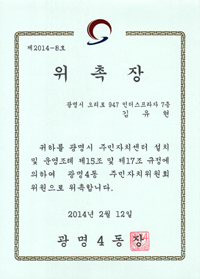 제2014-8호
위 촉 장
광명시 오리로 947 인터스프라자 7층
김 유 현
귀하를 광명시 주민자치센터 설치
및 운영조례 제15조 및 제17조 규정에
의하여 광명4동 주민자치위원회
위원으로 위촉합니다.
2014년 2월 12일
광 명 4 동 장